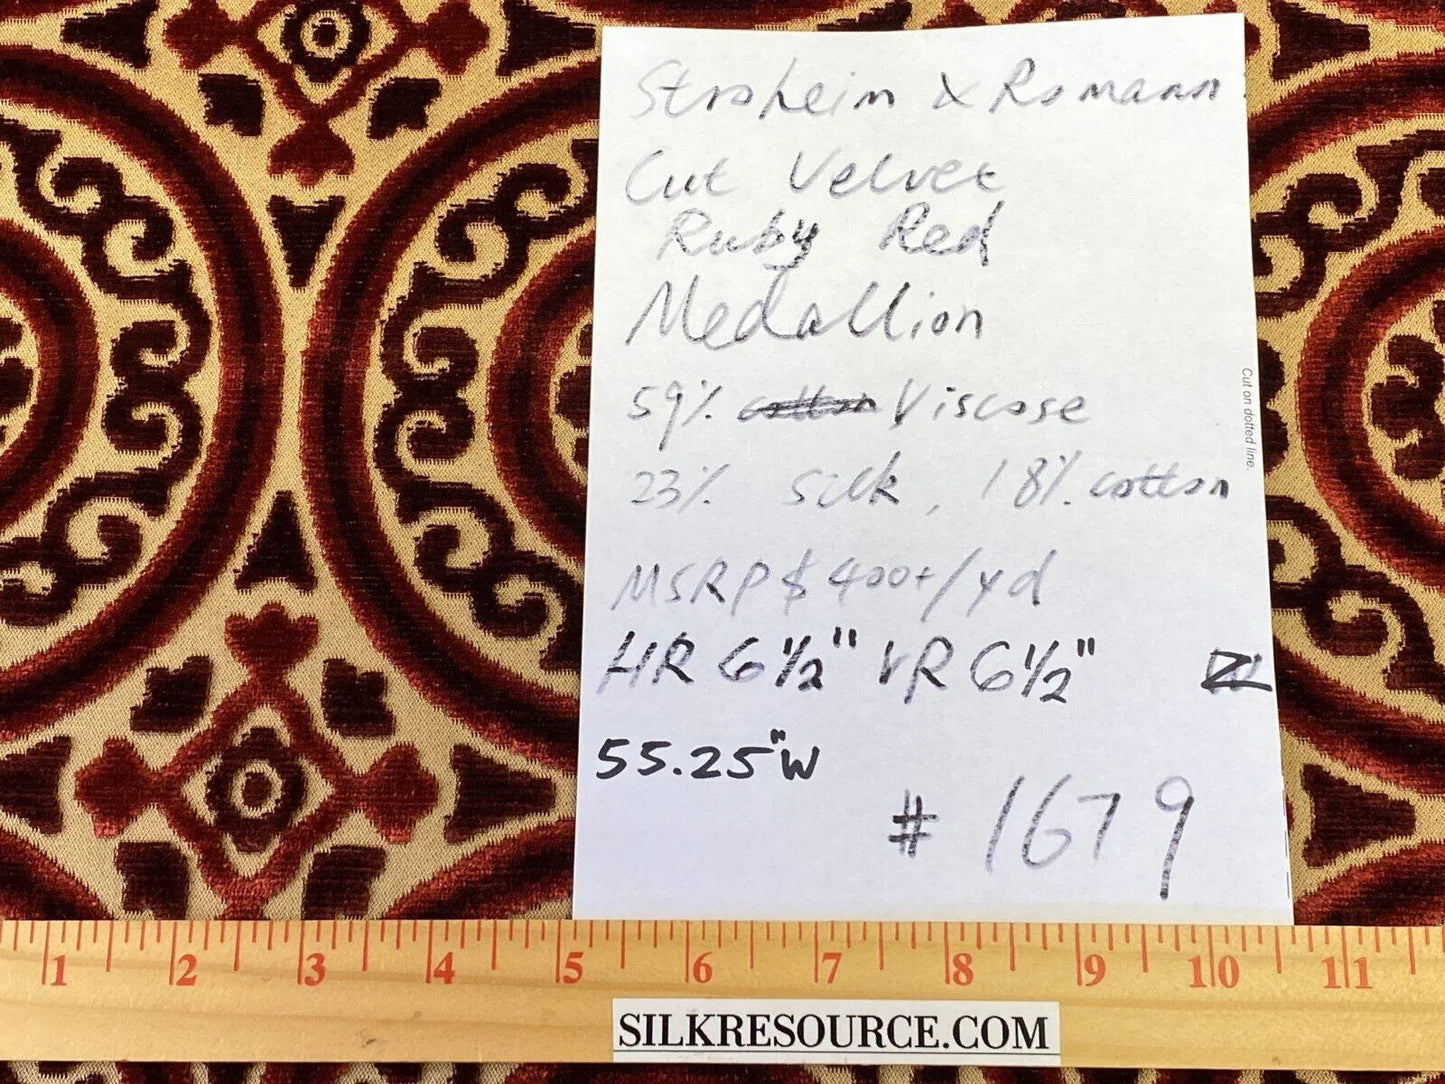 Stroheim & Romann
Cut Velvet
Ruby Red
Medallion
59% cotton Viscose
23% silk, 18% cotton
MSRP $400+/yd
HR 6 1/2" VR 6 1/2"
55.25"W
# 1679
Cut on dotted line.
1 2 3 4 5 6 7 8 9 10 11
SILKRESOURCE.COM